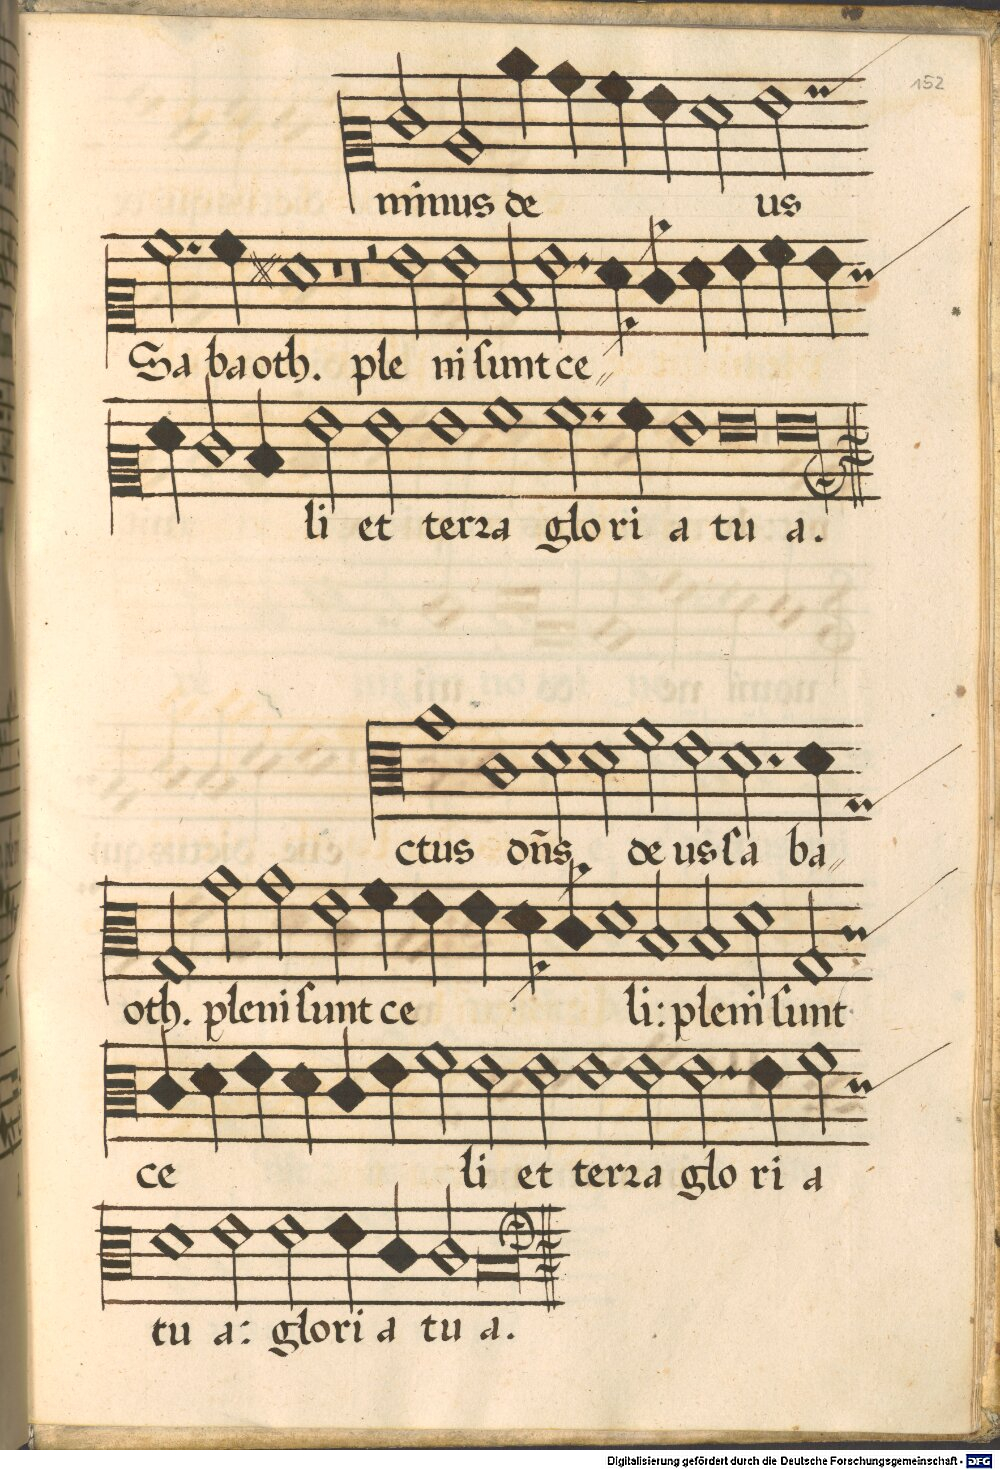 152
minus de us
Sa ba oth. ple ni sunt ce
li et terra glo ri a tu a.
ctus dñs de us sa ba
oth. pleni sunt ce li: pleni sunt
ce li et terra glo ri a
tu a: glori a tu a.
Digitalisierung gefördert durch die Deutsche Forschungsgemeinschaft - DFG